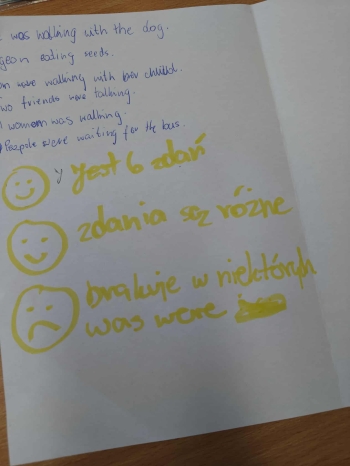 was walking with the dog.
geon eating seeds.
were walking with her
two friends were talking.
women was walking.
were waiting for the bus.
jest 6 zdań
zdania są różne
brakuje w niektórych
was were